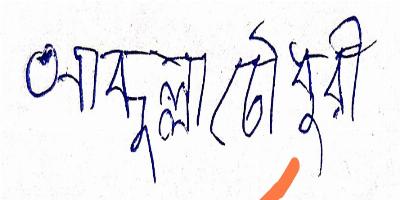 আব্দুল্লা চৌধুরী